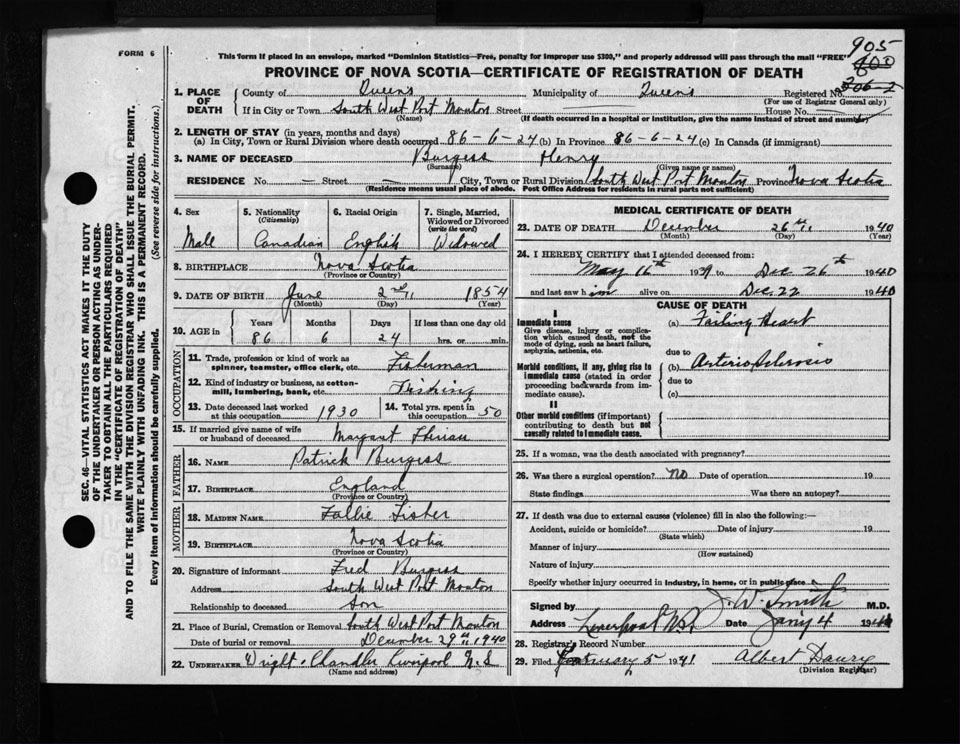 FORM 6
This form if placed in an envelope, marked "Dominion Statistics—Free, penalty for improper use $300," and properly addressed will pass through the mail "FREE"
905
800
PROVINCE OF NOVA SCOTIA—CERTIFICATE OF REGISTRATION OF DEATH
1. PLACE OF DEATH County of Queens Municipality of Queens Registered No.
(For use of Registrar General only)
If in City or Town South West Port Mouton Street House No.
(Name) (If death occurred in a hospital or institution, give the name instead of street and number)
2. LENGTH OF STAY (in years, months and days)
(a) In City, Town or Rural Division where death occurred 86-6-24 (b) In Province 86-6-24 (c) In Canada (if immigrant)
3. NAME OF DECEASED Burgess Henry
(Surname) (Given name or names)
RESIDENCE No. — Street — City, Town or Rural Division South West Port Mouton Province Nova Scotia
(Residence means usual place of abode. Post Office Address for residents in rural parts not sufficient)
4. Sex Male
5. Nationality (Citizenship) Canadian
6. Racial Origin English
7. Single, Married, Widowed or Divorced (write the word) Widowed
8. BIRTHPLACE Nova Scotia
(Province or Country)
9. DATE OF BIRTH June 2nd 1854
(Month) (Day) (Year)
10. AGE in Years Months Days If less than one day old
86 6 24 hrs. or min.
OCCUPATION
11. Trade, profession or kind of work as spinner, teamster, office clerk, etc. Fisherman
12. Kind of industry or business, as cotton-mill, lumbering, bank, etc. Fishing
13. Date deceased last worked at this occupation 1930
14. Total yrs. spent in this occupation 50
15. If married give name of wife or husband of deceased Margaret
FATHER
16. NAME Patrick Burgess
17. BIRTHPLACE England
(Province or Country)
MOTHER
18. MAIDEN NAME Fisher
19. BIRTHPLACE Nova Scotia
(Province or Country)
20. Signature of informant Fred Burgess
Address South West Port Mouton
Relationship to deceased Son
21. Place of Burial, Cremation or Removal South West Port Mouton
Date of burial or removal December 29th 1940
22. UNDERTAKER Wright & Chandler Liverpool N.S
(Name and address)
MEDICAL CERTIFICATE OF DEATH
23. DATE OF DEATH December 26th 1940
(Month) (Day) (Year)
24. I HEREBY CERTIFY that I attended deceased from:
May 16th 1939 to Dec 26th 1940
and last saw him alive on Dec. 22 1940
CAUSE OF DEATH
I
Immediate cause
Give disease, injury or complication which caused death, not the mode of dying, such as heart failure, asphyxia, asthenia, etc.
(a) Failing Heart
due to
Morbid conditions, if any, giving rise to immediate cause (stated in order proceeding backwards from immediate cause).
(b) Arterio Sclerosis
due to
(c)
II
Other morbid conditions (if important) contributing to death but not causally related to immediate cause.
25. If a woman, was the death associated with pregnancy?
26. Was there a surgical operation? No Date of operation 19
State findings Was there an autopsy?
27. If death was due to external causes (violence) fill in also the following:—
Accident, suicide or homicide? Date of injury 19
(State which)
Manner of injury
(How sustained)
Nature of injury
Specify whether injury occurred in industry, in home, or in public place
Signed by J. W. Smith M.D.
Address Liverpool N.S. Date Jan'y 4 1941
28. Registrar's Record Number
29. Filed February 5 1941 Albert Daury
(Division Registrar)
SEC. 46—VITAL STATISTICS ACT MAKES IT THE DUTY
OF THE UNDERTAKER OR PERSON ACTING AS UNDER-
TAKER TO OBTAIN ALL THE PARTICULARS REQUIRED
IN THE "CERTIFICATE OF REGISTRATION OF DEATH"
AND TO FILE THE SAME WITH THE DIVISION REGISTRAR WHO SHALL ISSUE THE BURIAL PERMIT.
WRITE PLAINLY WITH UNFADING INK. THIS IS A PERMANENT RECORD.
Every item of information should be carefully supplied. (See reverse side for instructions.)